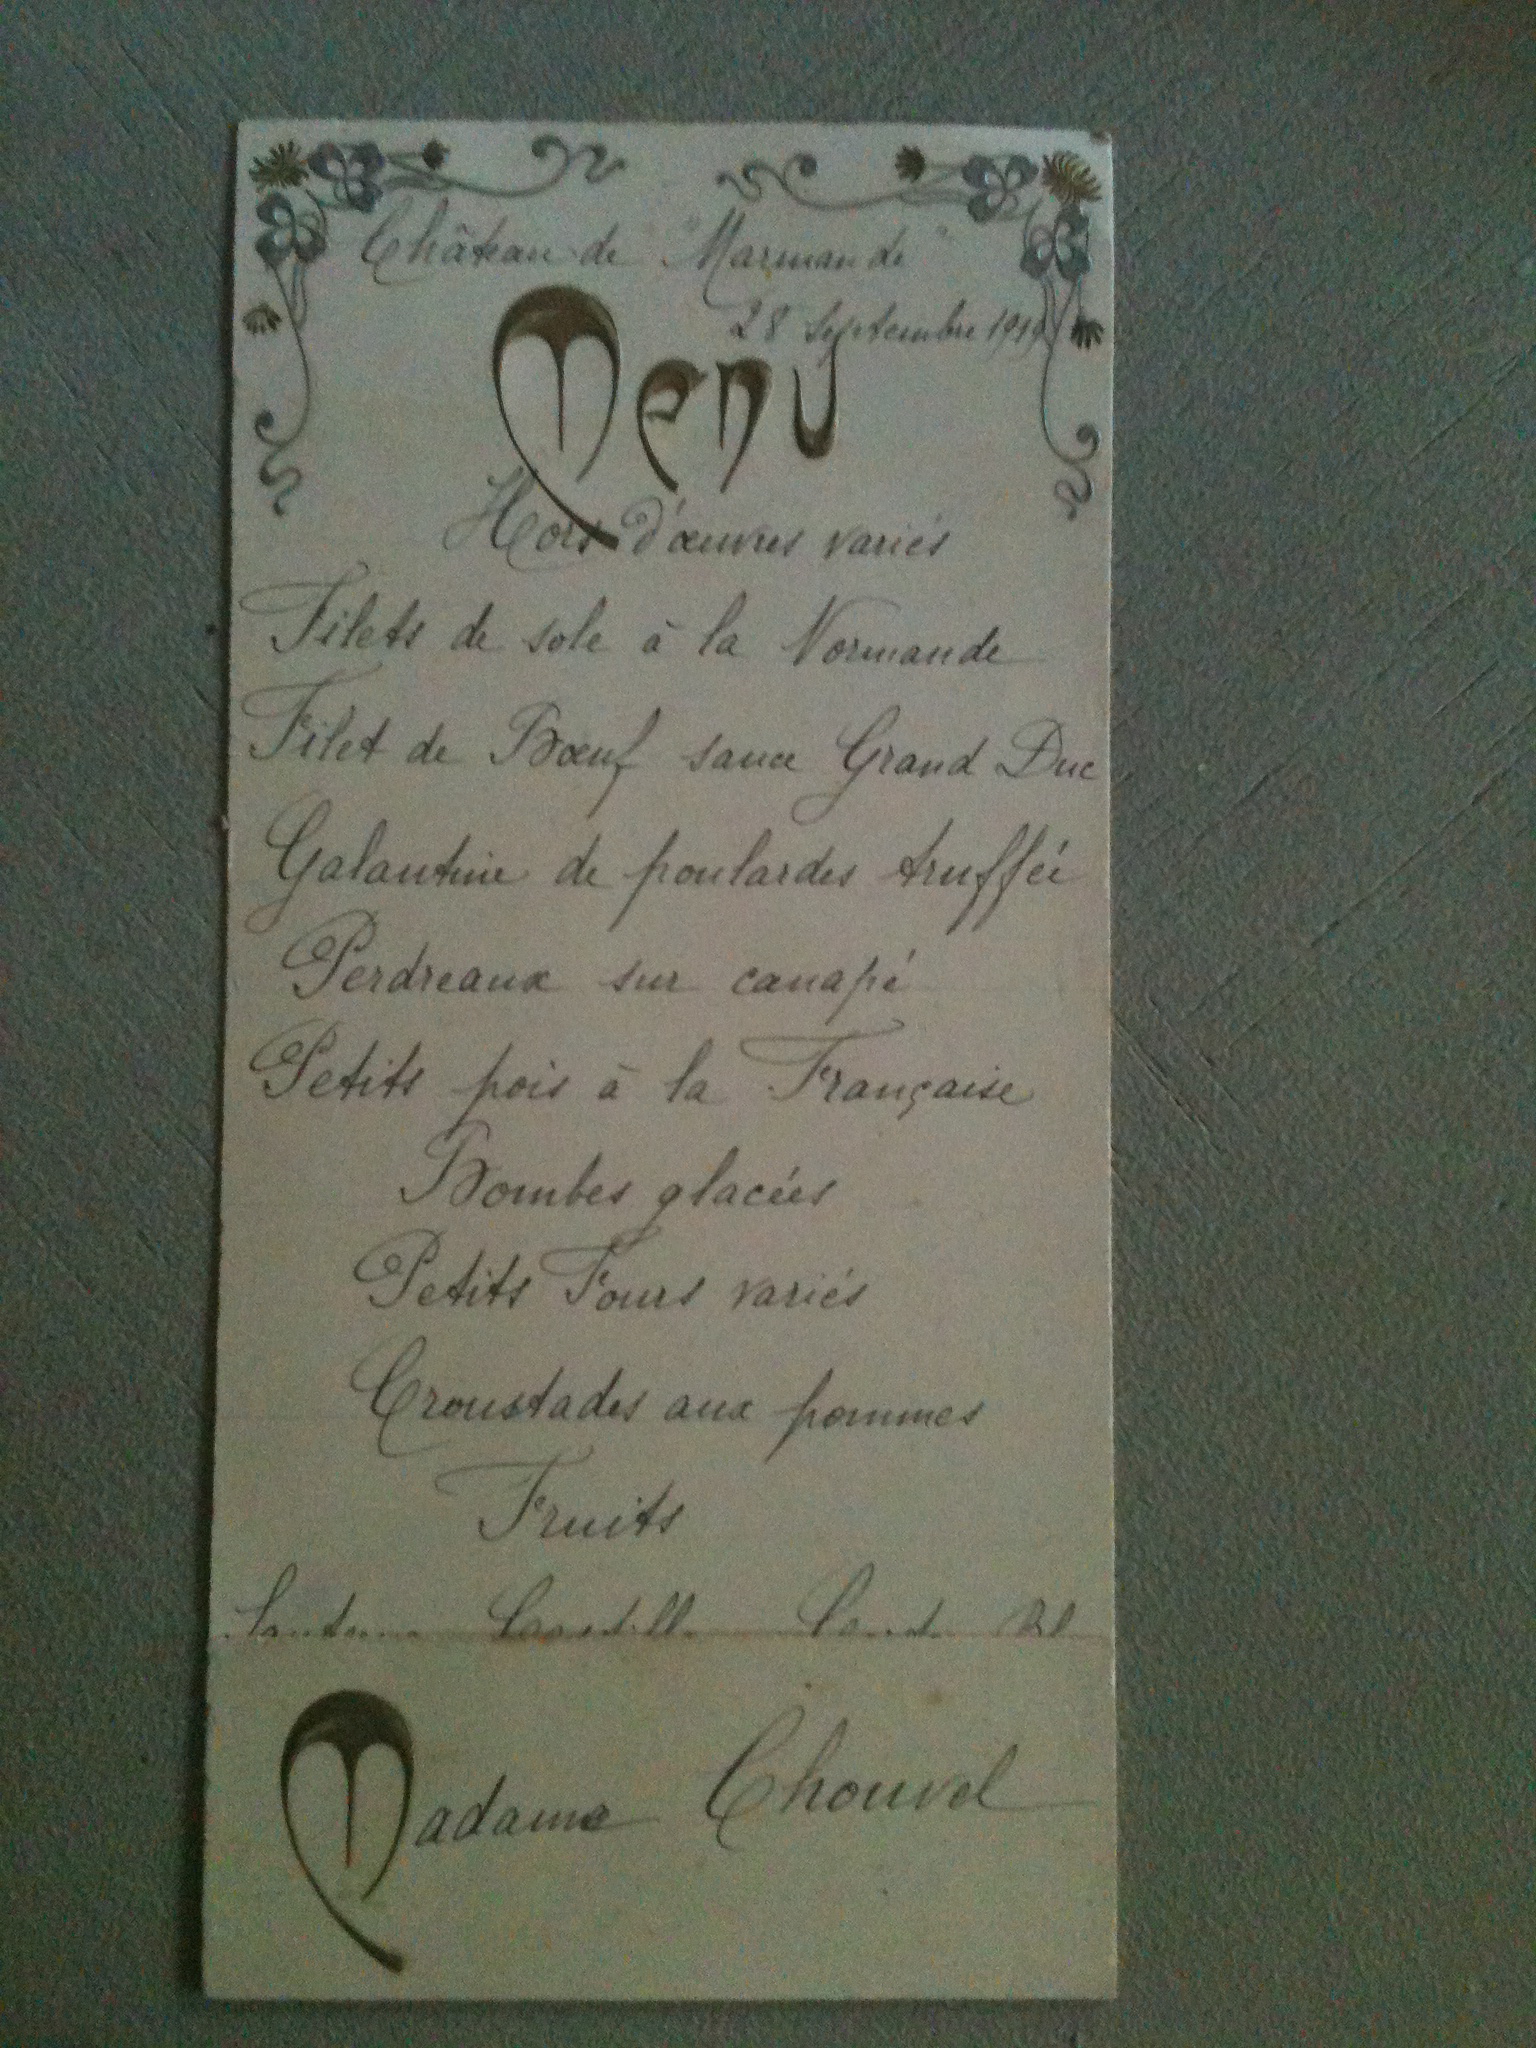 Château de "Marmande"
28 Septembre 1919
Menu
Hors d'œuvres variés
Filets de sole à la Normande
Filet de Bœuf sauce Grand Duc
Galantine de poulardes truffée
Perdreaux sur canapé
Petits pois à la Française
Bombes glacées
Petits Fours variés
Croustades aux pommes
Fruits
Madame Chouvel